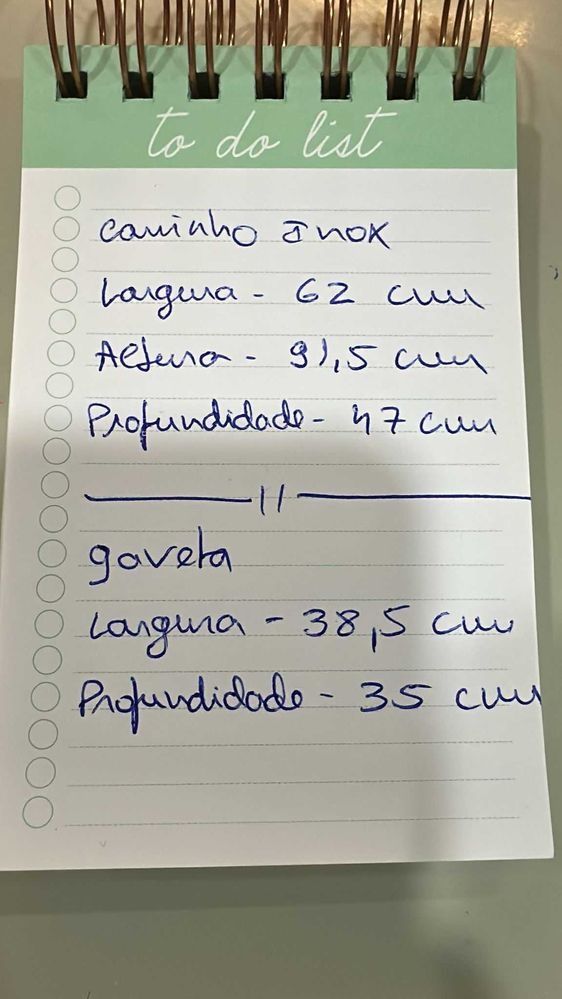 to do list
Carrinho Inox
Largura - 62 cm
Altura - 91,5 cm
Profundidade - 47 cm
—— 11 ——
gaveta
Largura - 38,5 cm
Profundidade - 35 cm